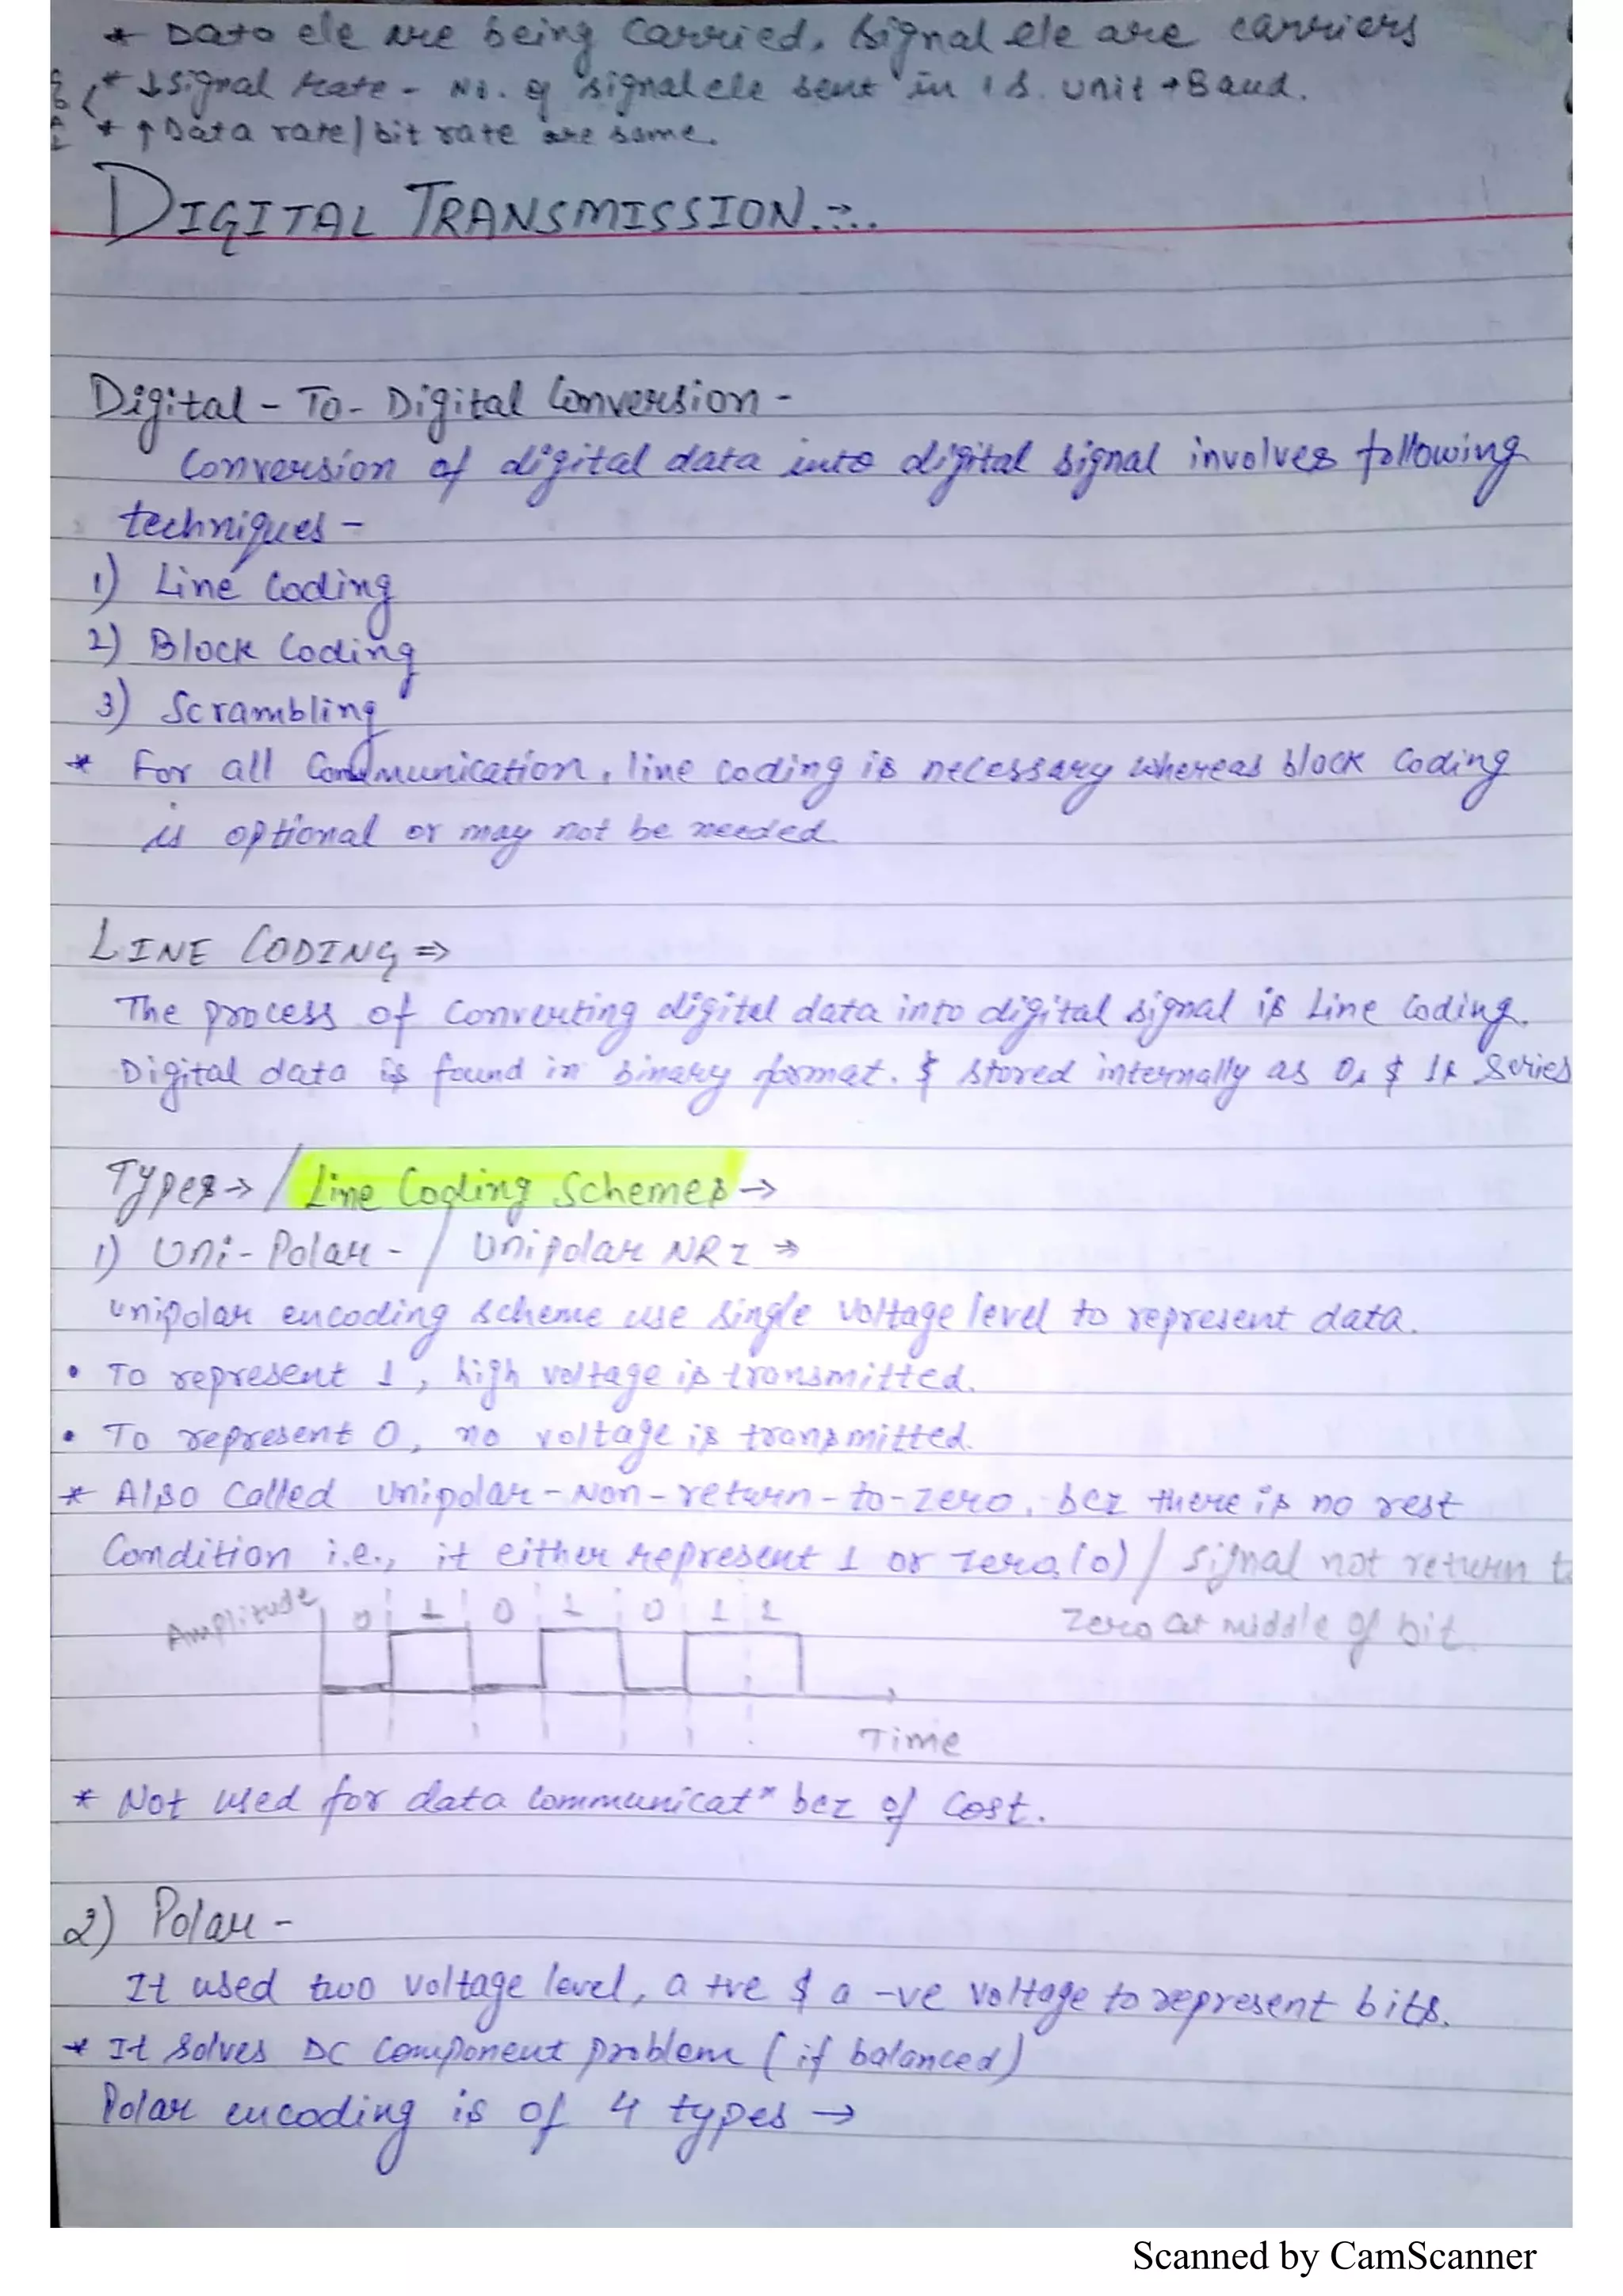 * Data ele are being carried, signal ele are carriers
* ↓ signal rate - No. of signal ele sent in 1 s. unit → Baud.
* ↑ Data rate/bit rate are same.
DIGITAL TRANSMISSION :-
Digital - To - Digital Conversion -
Conversion of digital data into digital signal involves following
techniques -
1) Line Coding
2) Block Coding
3) Scrambling
* For all Communication, line coding is necessary whereas block coding
is optional or may not be needed.
LINE CODING ⇒
The process of converting digital data into digital signal is Line Coding.
Digital data is found in binary format. & stored internally as 0s & 1s series
Types → / Line Coding Schemes →
1) Uni-Polar - / Unipolar NRZ →
unipolar encoding scheme use single voltage level to represent data.
• To represent 1, high voltage is transmitted.
• To represent 0, no voltage is transmitted.
* Also called unipolar-Non-return-to-zero, bcz there is no rest
Condition i.e., it either represent 1 or zero (0) / signal not return to
zero at middle of bit.
Amplitude 0 1 0 1 0 1 1
Time
* Not used for data communicatⁿ bcz of cost.
2) Polar -
It used two voltage level, a +ve & a -ve voltage to represent bits.
* It solves DC component problem (if balanced)
Polar encoding is of 4 types →
Scanned by CamScanner